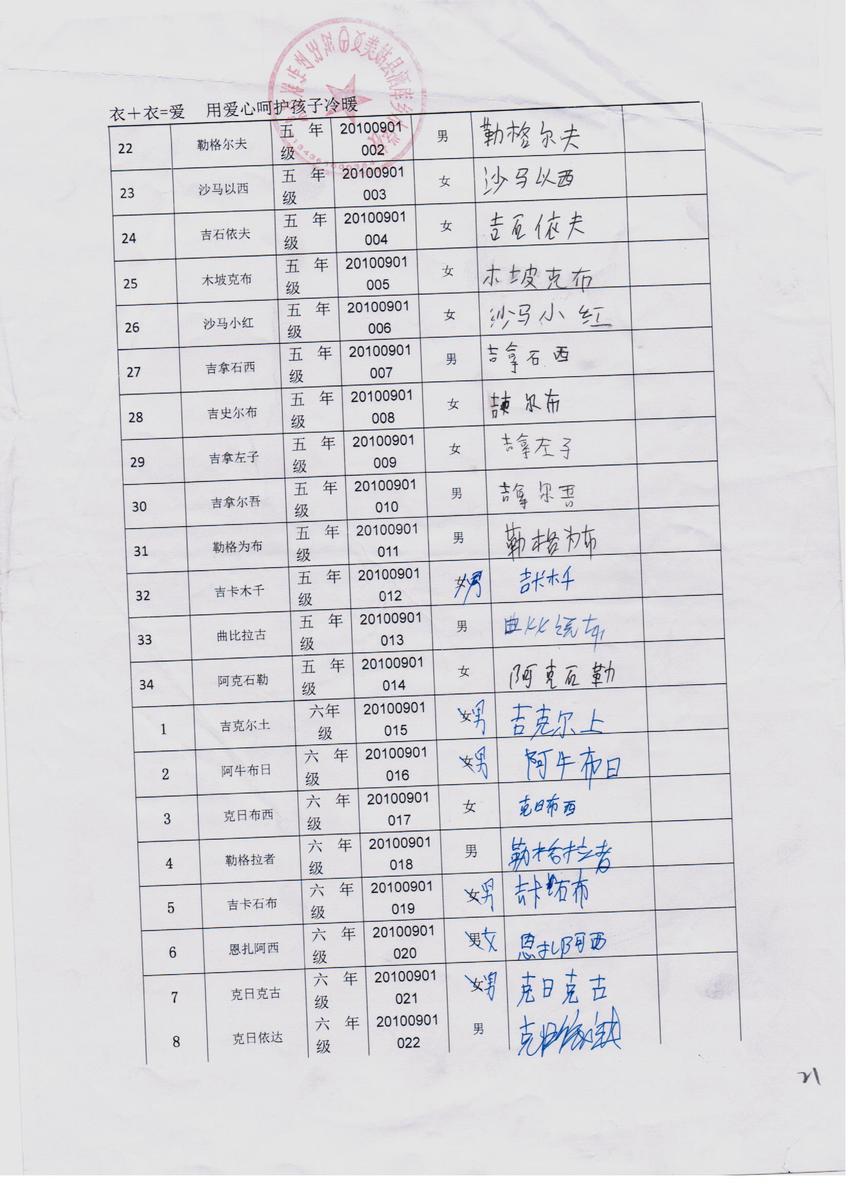 衣+衣=爱 用爱心呵护孩子冷暖
22 勒格尔夫 五年级 20100901002 男 勒格尔夫
23 沙马以西 五年级 20100901003 女 沙马以西
24 吉石依夫 五年级 20100901004 女 吉石依夫
25 木坡克布 五年级 20100901005 女 木坡克布
26 沙马小红 五年级 20100901006 女 沙马小红
27 吉拿石西 五年级 20100901007 男 吉拿石西
28 吉史尔布 五年级 20100901008 女 吉史尔布
29 吉拿左子 五年级 20100901009 女 吉拿左子
30 吉拿尔吾 五年级 20100901010 男 吉拿尔吾
31 勒格为布 五年级 20100901011 男 勒格为布
32 吉卡木千 五年级 20100901012 女 男 吉卡木千
33 曲比拉古 五年级 20100901013 男 曲比
34 阿克石勒 五年级 20100901014 女 阿克石勒
1 吉克尔土 六年级 20100901015 女 男 吉克尔上
2 阿牛布日 六年级 20100901016 女 男 阿牛布日
3 克日布西 六年级 20100901017 女 克日布西
4 勒格拉者 六年级 20100901018 男 勒格拉者
5 吉卡石布 六年级 20100901019 女 男 吉卡石布
6 恩扎阿西 六年级 20100901020 男 女 恩扎阿西
7 克日克古 六年级 20100901021 女 男 克日克古
8 克日依达 六年级 20100901022 男 克日依达
21